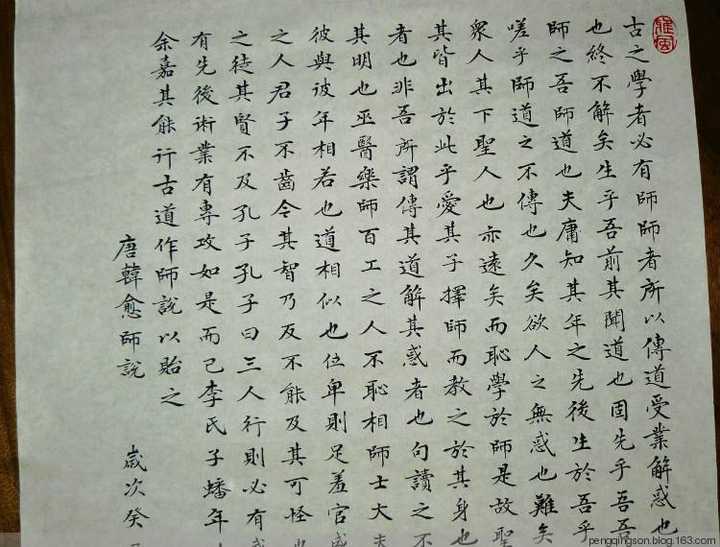 古之學者必有師師者所以傳道受業解惑也
也終不解矣生乎吾前其聞道也固先乎吾吾
師之吾師道也夫庸知其年之先後生於吾乎
嗟乎師道之不傳也久矣欲人之無惑也難矣
衆人其下聖人也亦遠矣而恥學於師是故聖
其皆出於此乎愛其子擇師而教之於其身也
者也非吾所謂傳其道解其惑者也句讀之不
其明也巫醫樂師百工之人不恥相師士大夫
彼與彼年相若也道相似也位卑則足羞官
之人君子不齒今其智乃反不能及其可怪也
之徒其賢不及孔子孔子曰三人行則必有
有先後術業有專攻如是而已李氏子蟠年
余嘉其能行古道作師說以貽之
唐韓愈師說 歲次癸
pengqingson.blog.163.com